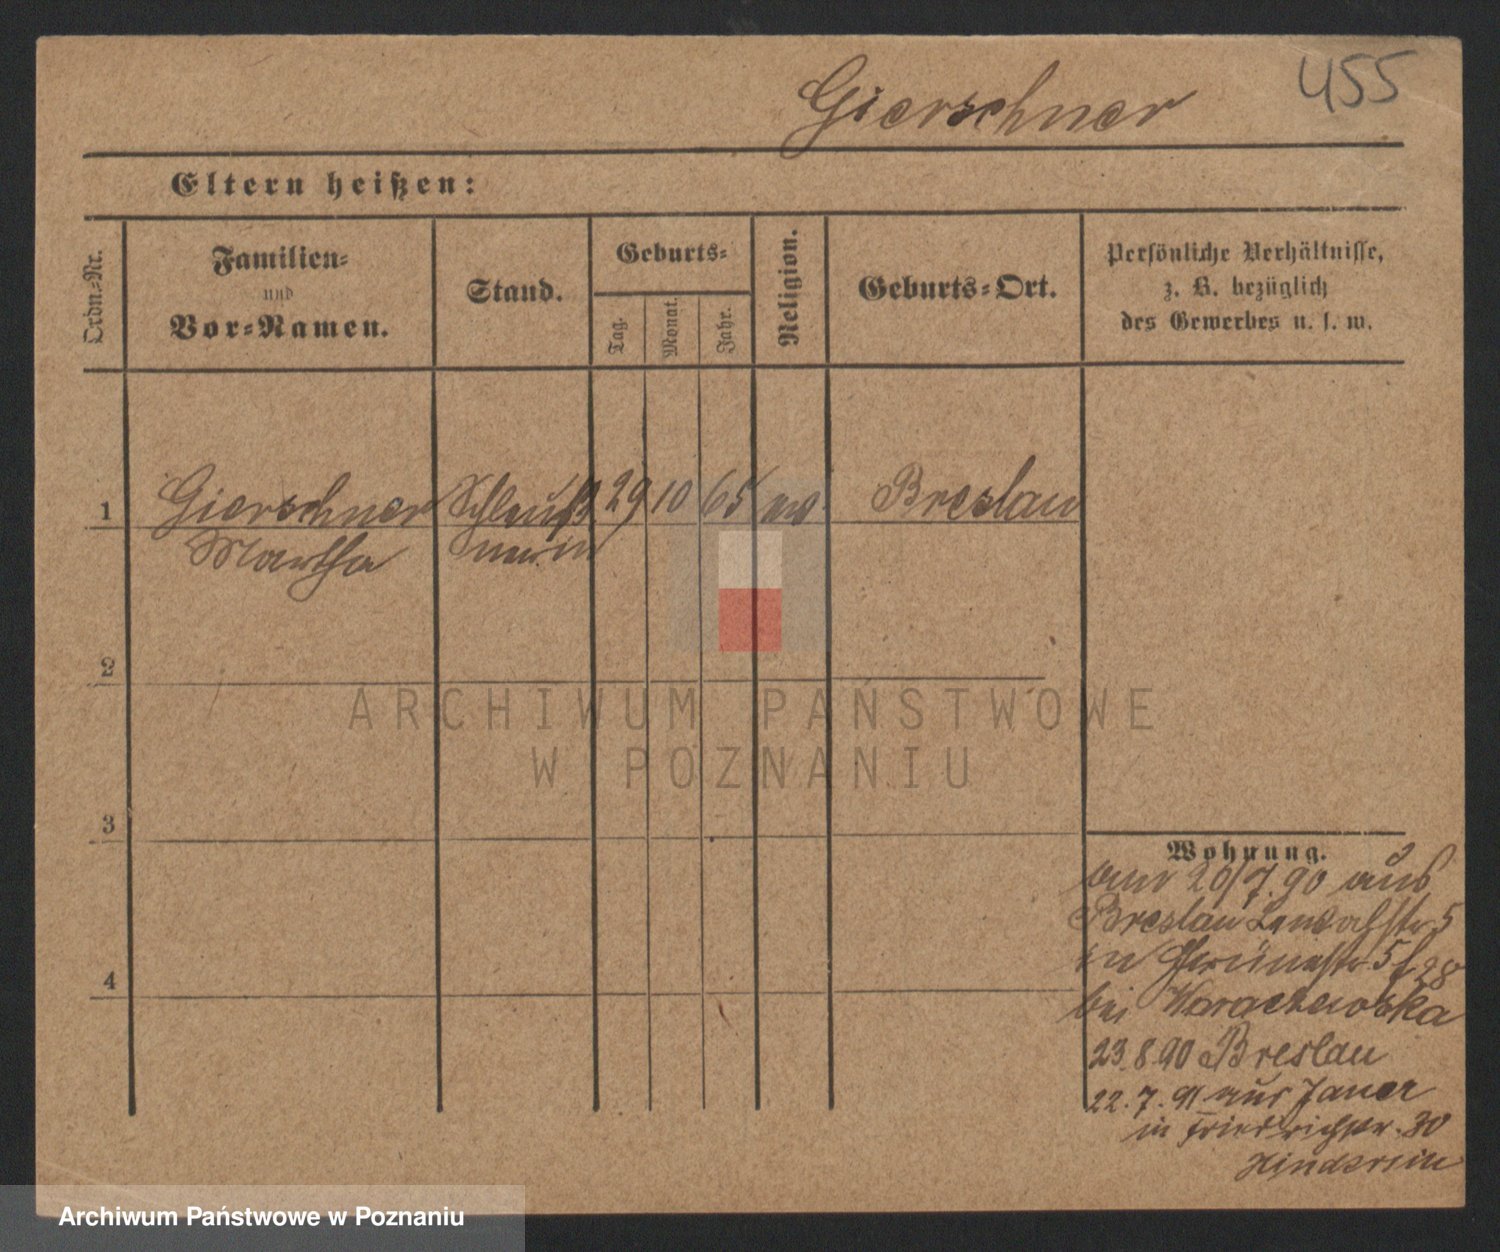 Gierschner
455
Eltern heißen:
Ordn.-Nr.
Familien-
und
Vor-Namen.
Stand.
Geburts-
Tag.
Monat.
Jahr.
Religion.
Geburts-Ort.
Persönliche Verhältnisse,
z. B. bezüglich
des Gewerbes u. s. w.
1 Gierschner 29 10 65 ev. Breslau
Martha
2
ARCHIWUM PAŃSTWOWE
W POZNANIU
3
4
Wohnung.
20/7. 90 aus
Breslau 5
in 5
bei
23.8.90 Breslau
22.7.91 aus Jauer
in Friedrichstr. 30
Archiwum Państwowe w Poznaniu